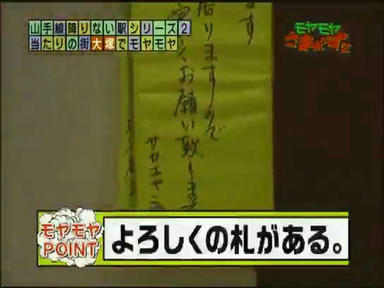 山手線降りない駅シリーズ2
当たりの街大塚でモヤモヤ
モヤモヤ
さまぁ〜ず2
ます
借りますので
宜しくお願い致します
モヤモヤ
POINT
よろしくの札がある。